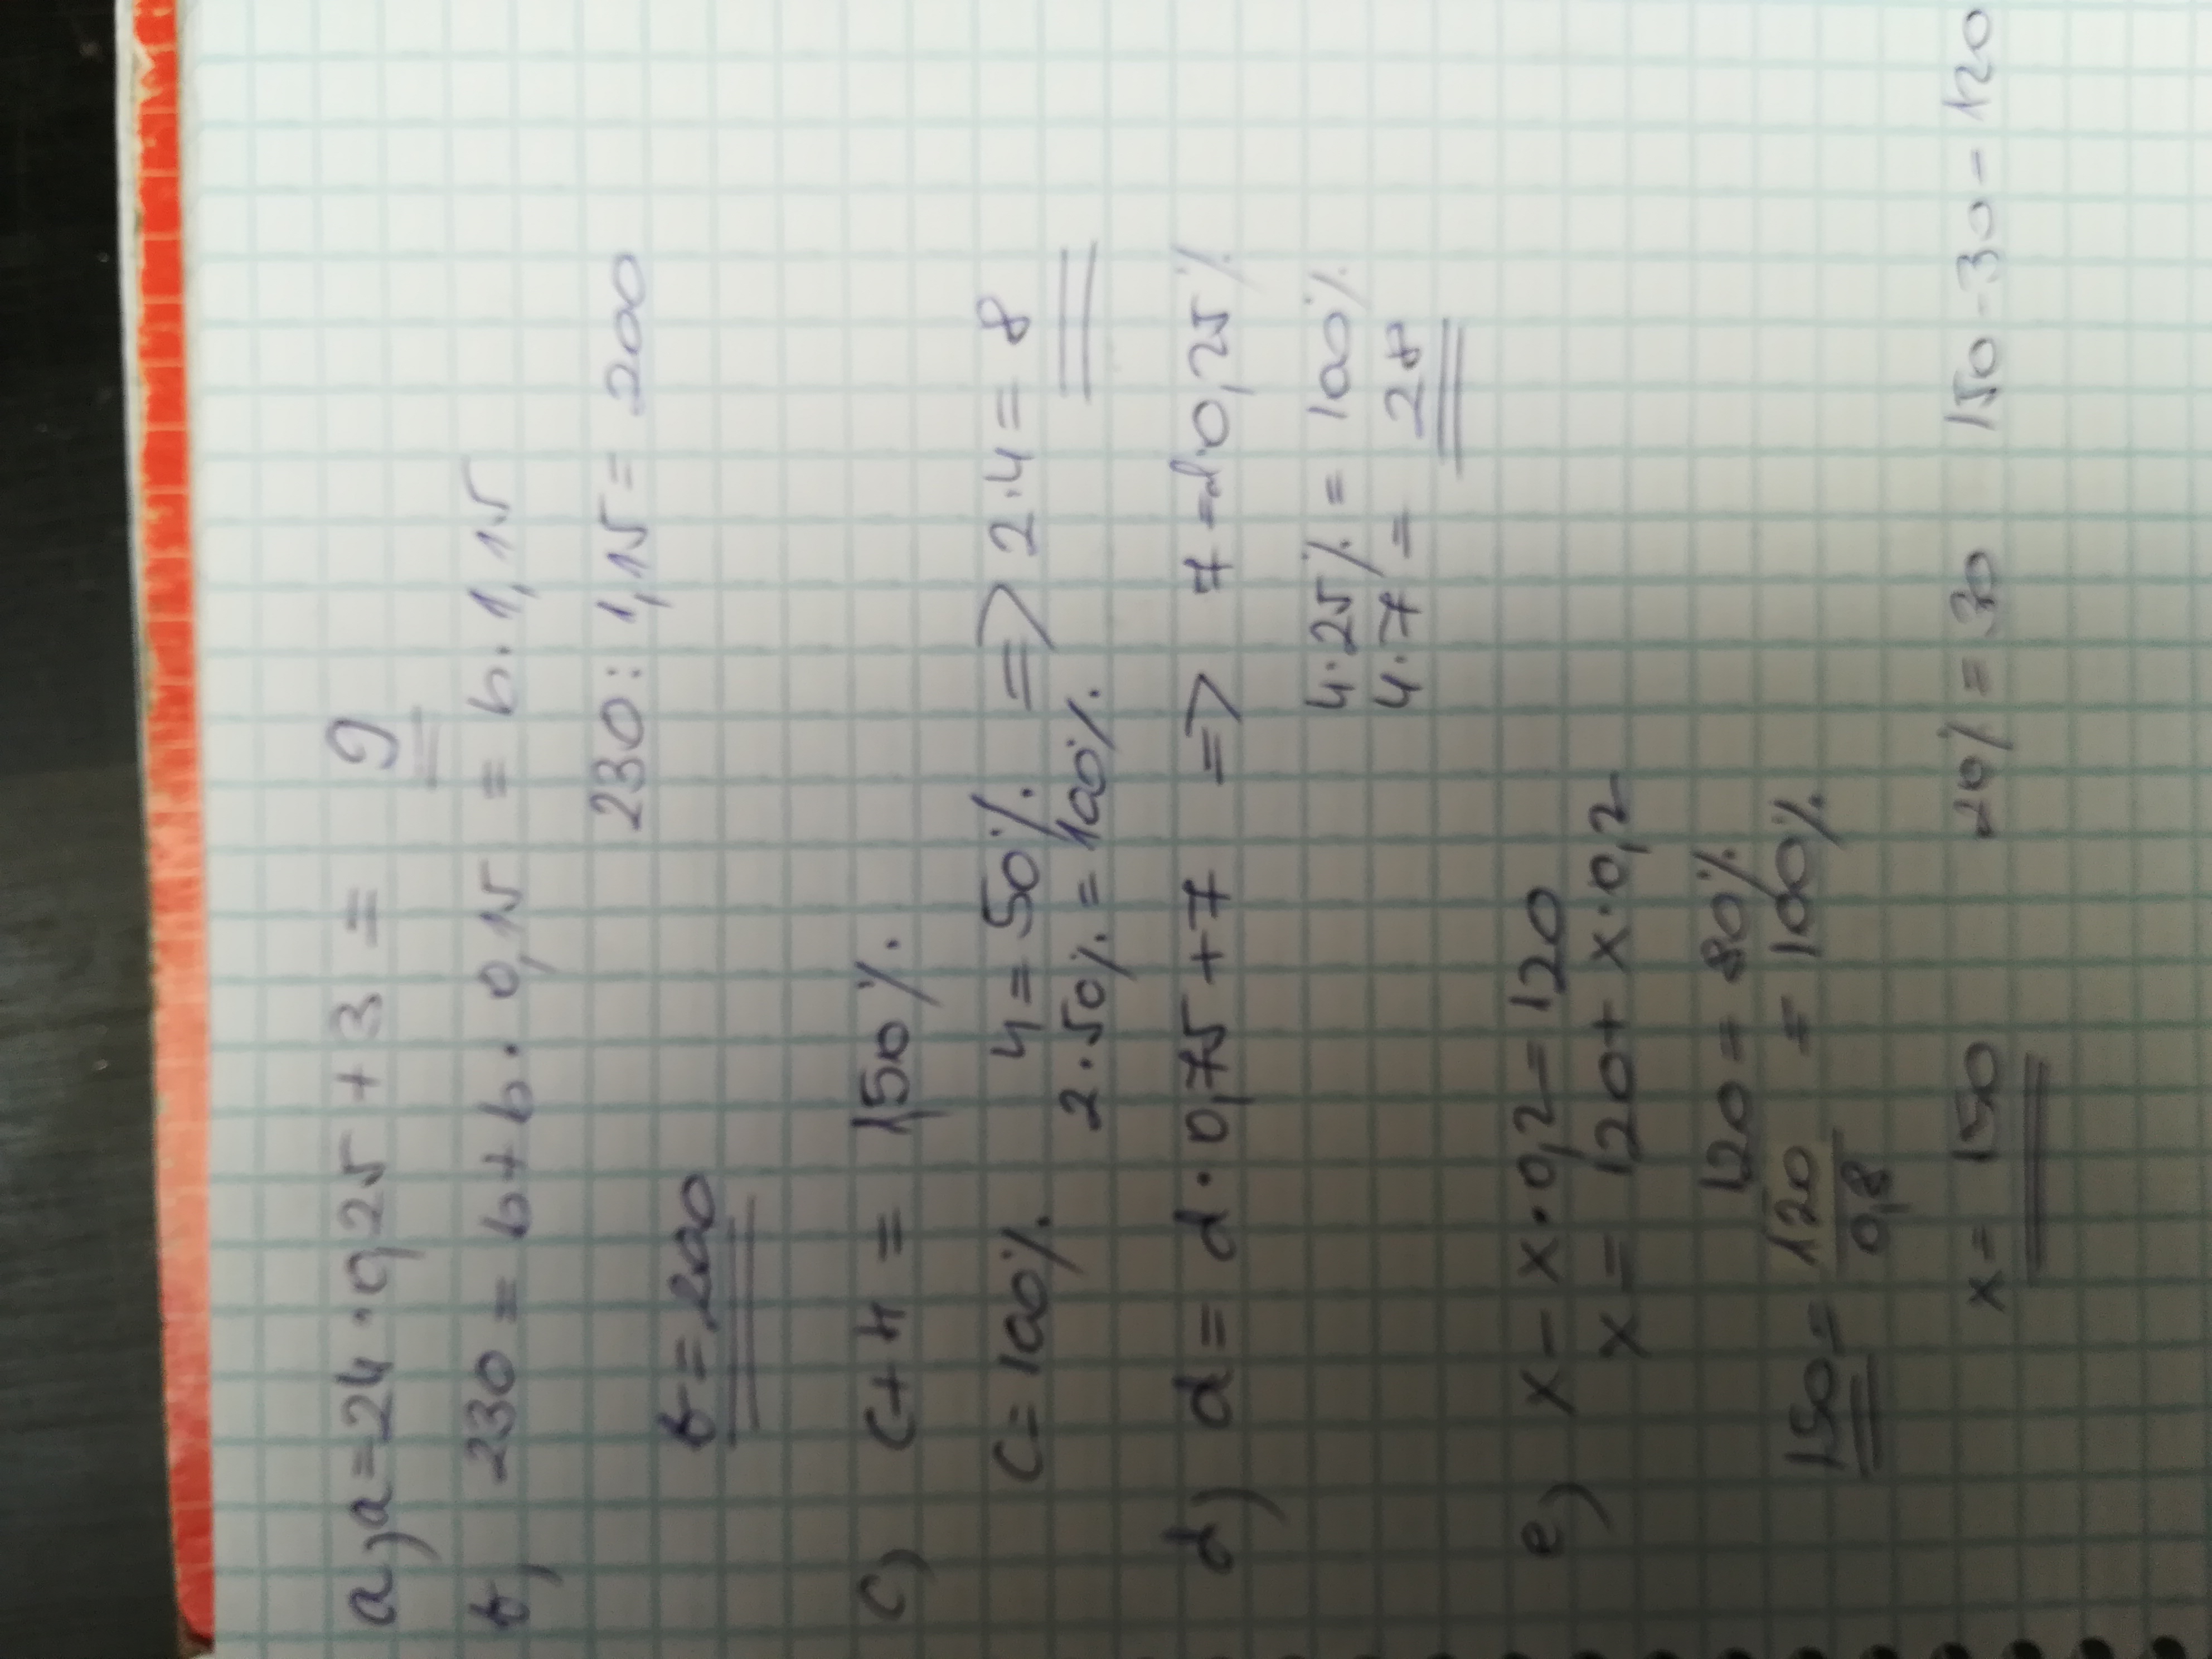 a) a = 24 · 0,25 + 3 = 9
b, 230 = b + b · 0,15 = b · 1,15
230 : 1,15 = 200
b = 200
c) c + 4 = 150%
c = 100% 4 = 50% => 2 · 4 = 8
2 · 50% = 100%
d) d = d · 0,75 + 7 => 7 = d · 0,25%
4 · 25% = 100%
4 · 7 = 28
e) x - x · 0,2 = 120
x = 120 + x · 0,2
120 = 80%
150 = 120/0,8 = 100%
x = 150 20% = 30 150 - 30 - 120